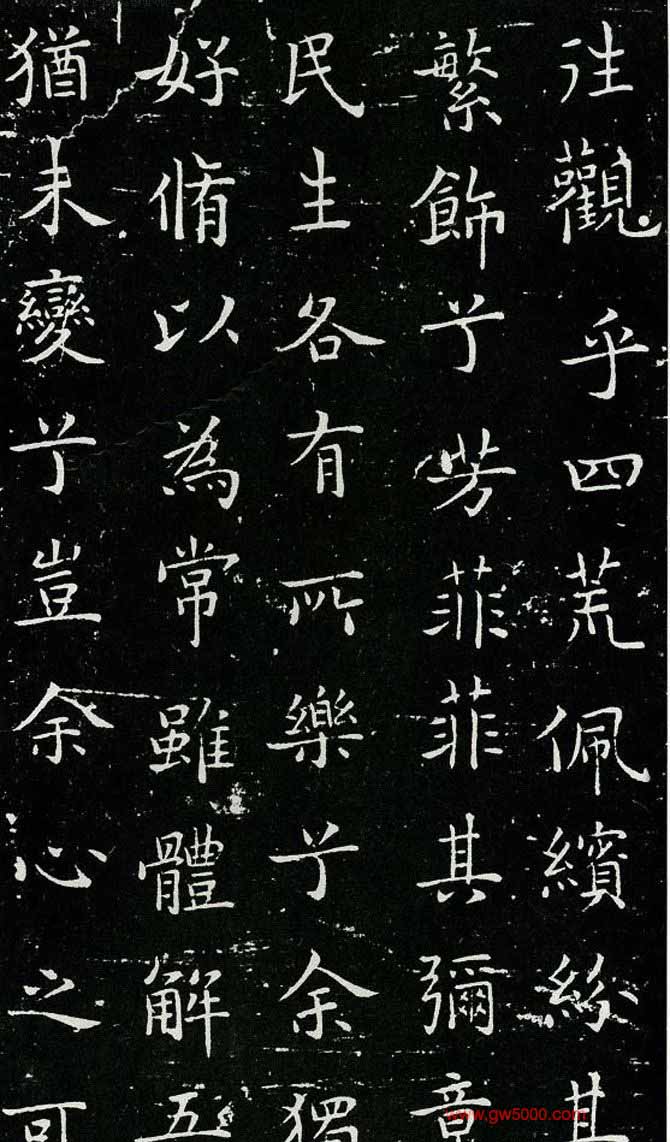 往觀乎四荒佩繽紛其
繁飾兮芳菲菲其彌章
民生各有所樂兮余獨
好脩以為常雖體解吾
猶未變兮豈余心之可
www.gw5000.com